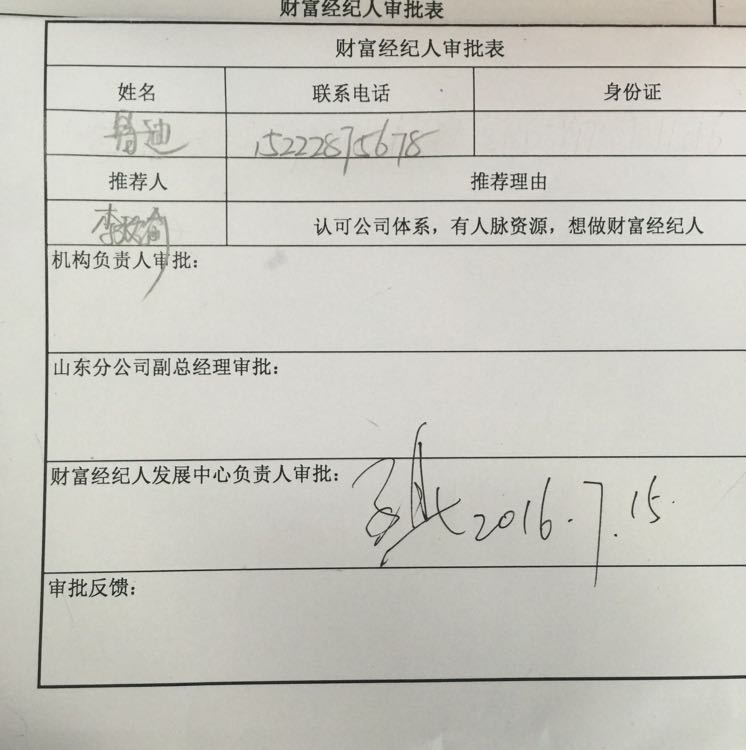 财富经纪人审批表
财富经纪人审批表
姓名 联系电话 身份证
鲁迪 15222875678
推荐人 推荐理由
认可公司体系，有人脉资源，想做财富经纪人
机构负责人审批：
山东分公司副总经理审批：
财富经纪人发展中心负责人审批：
2016.7.15.
审批反馈：